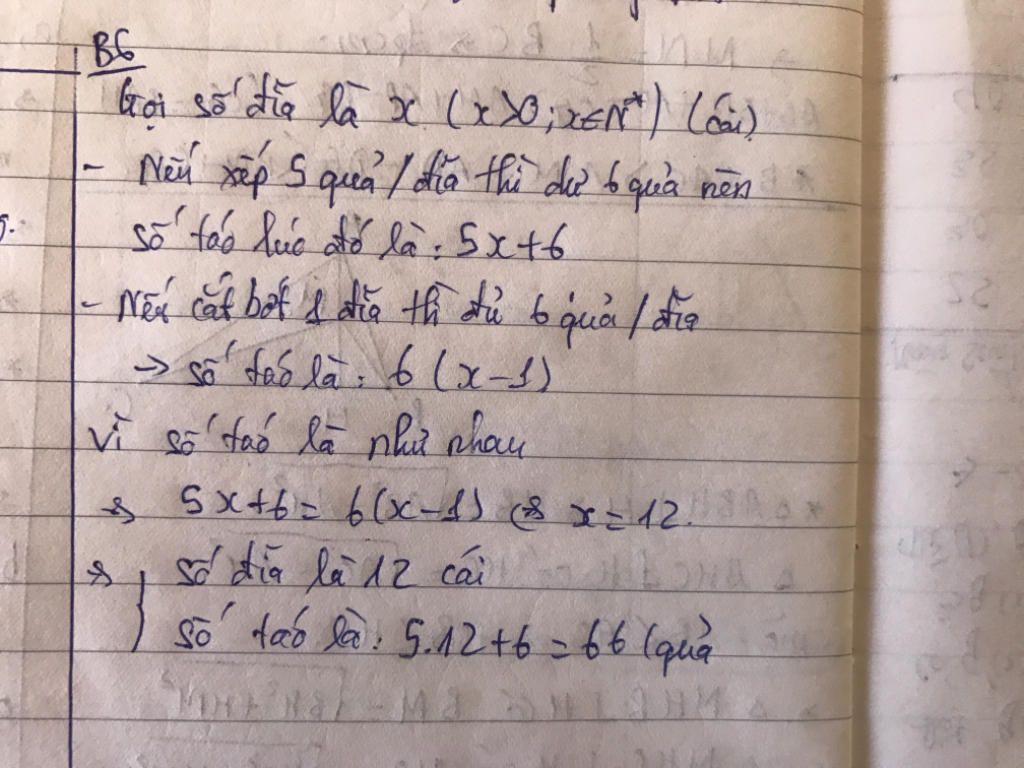 B6
Gọi số đĩa là x (x>0; x∈N*) (cái)
- Nếu xếp 5 quả/đĩa thì dư 6 quả nên
số táo lúc đó là: 5x+6
- Nếu cắt bớt 1 đĩa thì đủ 6 quả/đĩa
→ số táo là: 6(x-1)
Vì số táo là như nhau
⇒ 5x+6 = 6(x-1) ⇔ x=12.
⇒ số đĩa là 12 cái
số táo là: 5.12+6 = 66 (quả